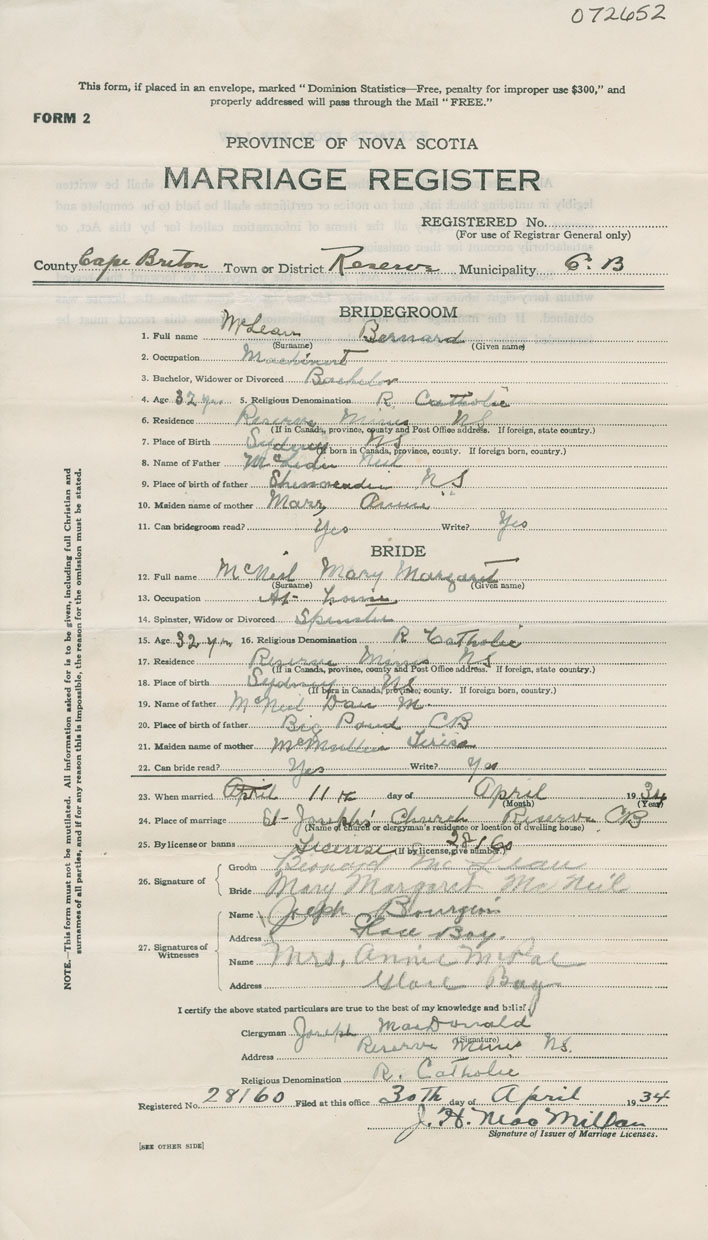 072652
This form, if placed in an envelope, marked "Dominion Statistics—Free, penalty for improper use $300," and
properly addressed will pass through the Mail "FREE."
FORM 2
PROVINCE OF NOVA SCOTIA
MARRIAGE REGISTER
REGISTERED No.
(For use of Registrar General only)
County Cape Breton Town or District Reserve Municipality C. B
BRIDEGROOM
1. Full name McLean Bernard
(Surname) (Given name)
2. Occupation Machinist
3. Bachelor, Widower or Divorced Bachelor
4. Age 32 yrs 5. Religious Denomination R. Catholic
6. Residence Reserve Mines NS
(If in Canada, province, county and Post Office address. If foreign, state country.)
7. Place of Birth Sydney NS
(If born in Canada, province, county. If foreign born, country.)
8. Name of Father McLean Neil
9. Place of birth of father NS
10. Maiden name of mother Mary Annie " "
11. Can bridegroom read? Yes Write? Yes
BRIDE
12. Full name McNeil Mary Margaret
(Surname) (Given name)
13. Occupation At home
14. Spinster, Widow or Divorced Spinster
15. Age 32 yrs 16. Religious Denomination R Catholic
17. Residence Reserve Mines NS
(If in Canada, province, county and Post Office address. If foreign, state country.)
18. Place of birth Sydney NS
(If born in Canada, province, county. If foreign born, country.)
19. Name of father McNeil Dan M.
20. Place of birth of father Big Pond CB
21. Maiden name of mother McMullin
22. Can bride read? Yes Write? Yes
23. When married April 11th day of April 1934
(Month) (Year)
24. Place of marriage St Josephs' Church Reserve CB
(Name of church or clergyman's residence or location of dwelling house)
25. By license or banns License 28160
(If by license, give number.)
26. Signature of Groom Bernard McLean
Bride Mary Margaret McNeil
27. Signatures of Witnesses Name Joseph Bourgeois
Address Glace Bay.
Name Mrs. Annie McRae
Address Glace Bay
I certify the above stated particulars are true to the best of my knowledge and belief,
Clergyman Joseph MacDonald
(Signature)
Address Reserve Mines NS.
Religious Denomination R. Catholic
Registered No. 28160 Filed at this office 30th day of April 1934
J. H. MacMillan
Signature of Issuer of Marriage Licenses.
[SEE OTHER SIDE]
NOTE.—This form must not be mutilated. All information asked for is to be given, including full Christian and
surnames of all parties, and if for any reason this is impossible, the reason for the omission must be stated.